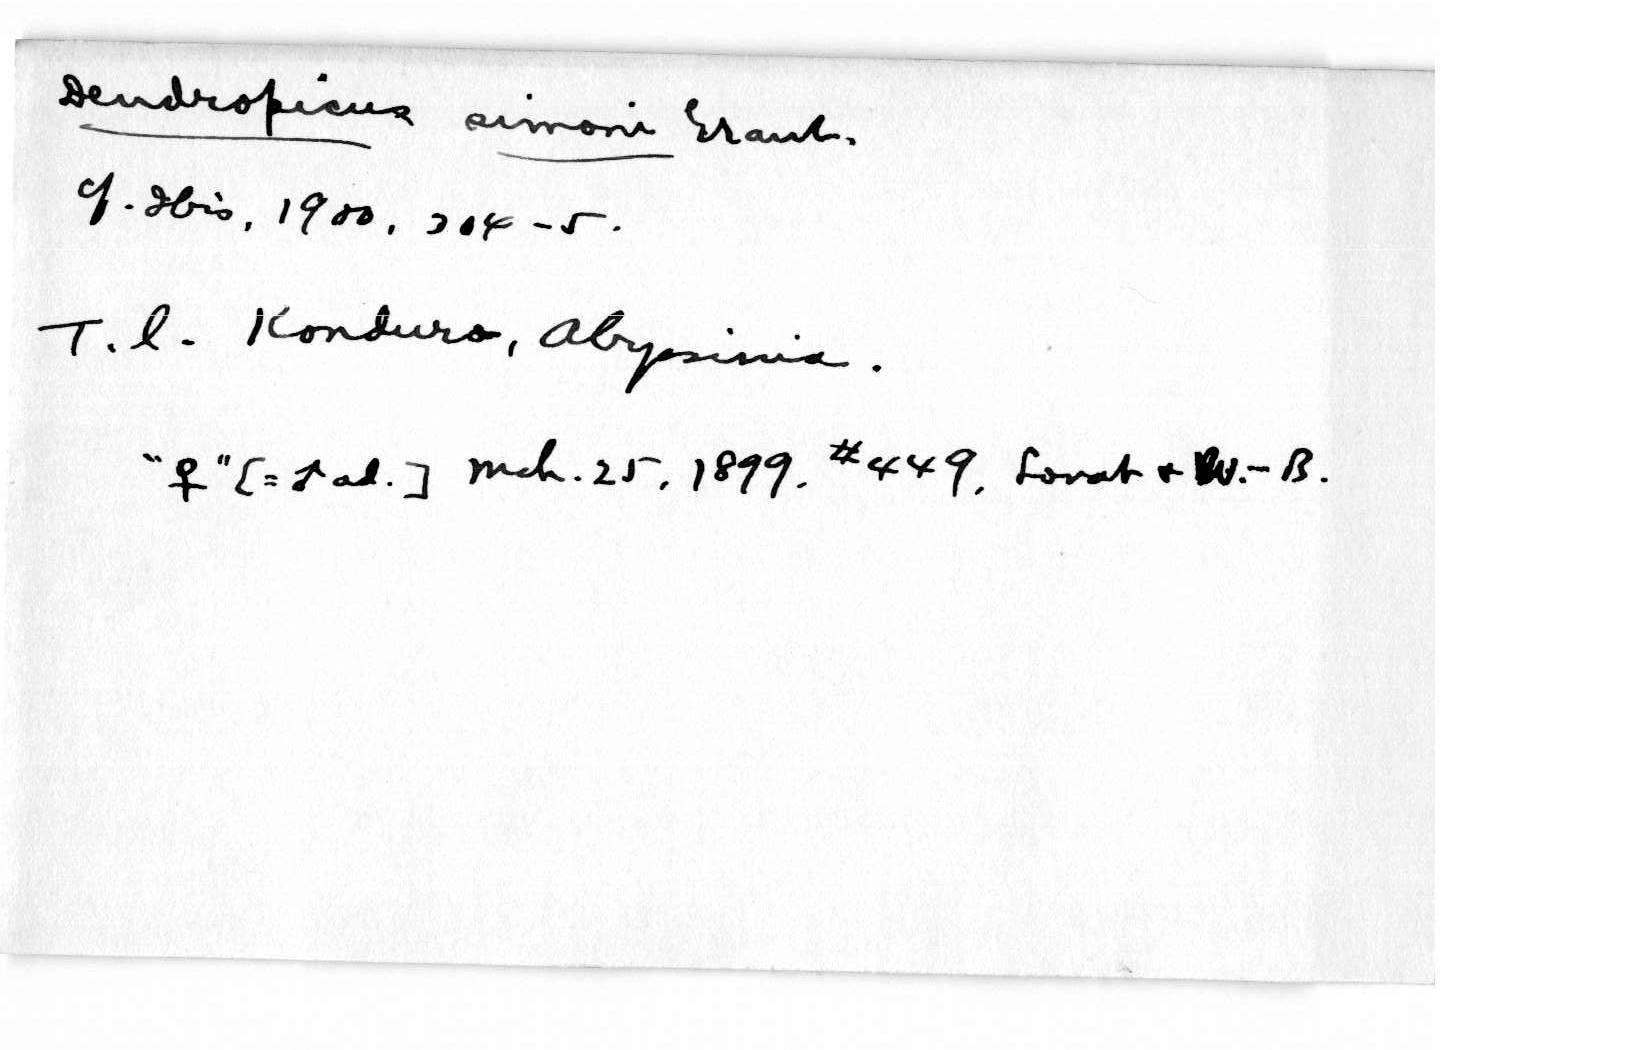 Dendropicus simoni Grant.
cf. Ibis, 1900, 304-5.
T.l. Konduro, Abyssinia.
"♀" [=♂ ad.] Mch. 25, 1899. #449, Lovat & W.-B.